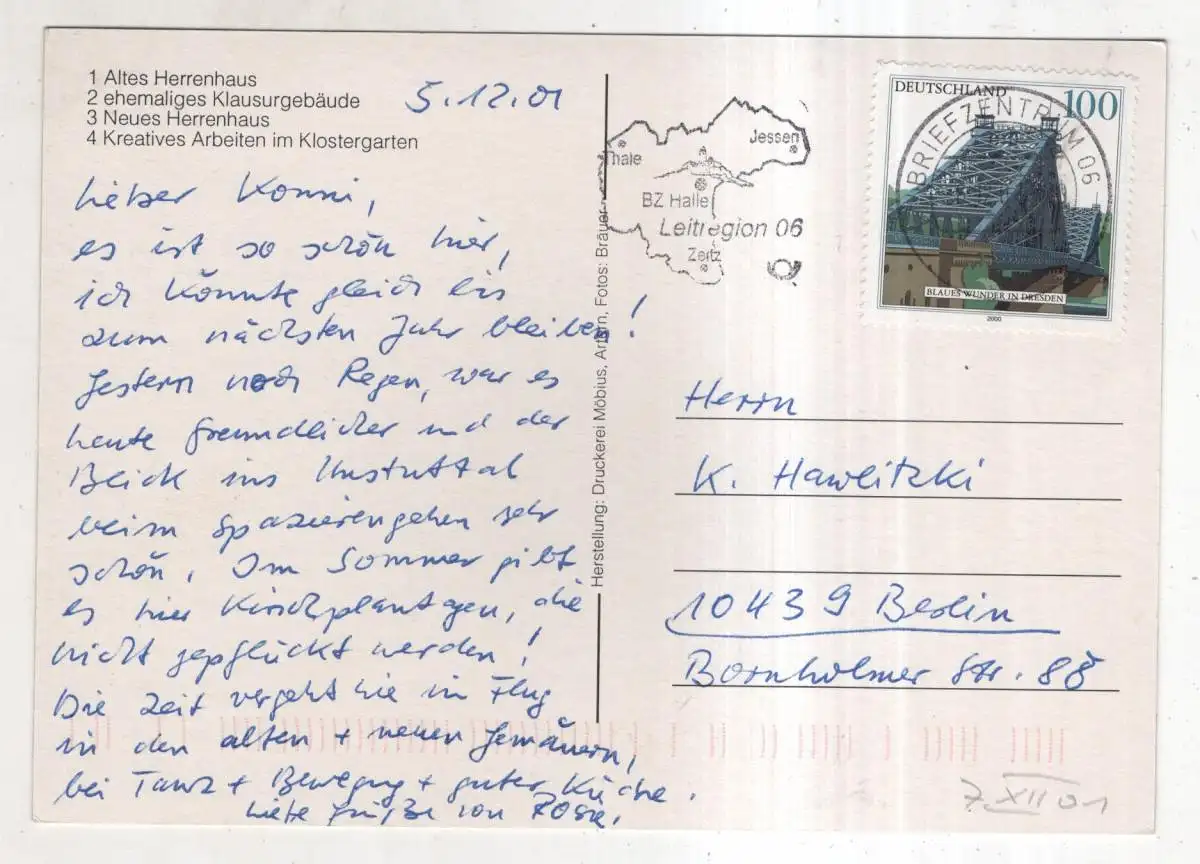 1 Altes Herrenhaus
2 ehemaliges Klausurgebäude
3 Neues Herrenhaus
4 Kreatives Arbeiten im Klostergarten
5.12.01
Lieber Konni,
es ist so schön hier,
ich könnte gleich bis
zum nächsten Jahr bleiben!
Gestern noch Regen, war es
heute freundlicher und der
Blick ins Unstruttal
beim Spazierengehen sehr
schön. Im Sommer gibt
es hier Kirschplantagen, die
nicht gepflückt werden!
Die Zeit vergeht wie im Flug
in den alten + neuen Gemäuern,
bei Tanz + Bewegung + guter Küche.
Liebe Grüße von Rosie.
Herstellung: Druckerei Möbius, Artern, Fotos: Bräuer
Thale
Jessen
BZ Halle
Leitregion 06
Zeitz
BRIEFZENTRUM 06
DEUTSCHLAND
100
BLAUES WUNDER IN DRESDEN
2000
Herrn
K. Hawlitzki
10439 Berlin
Bornholmer Str. 88
7.XII 01